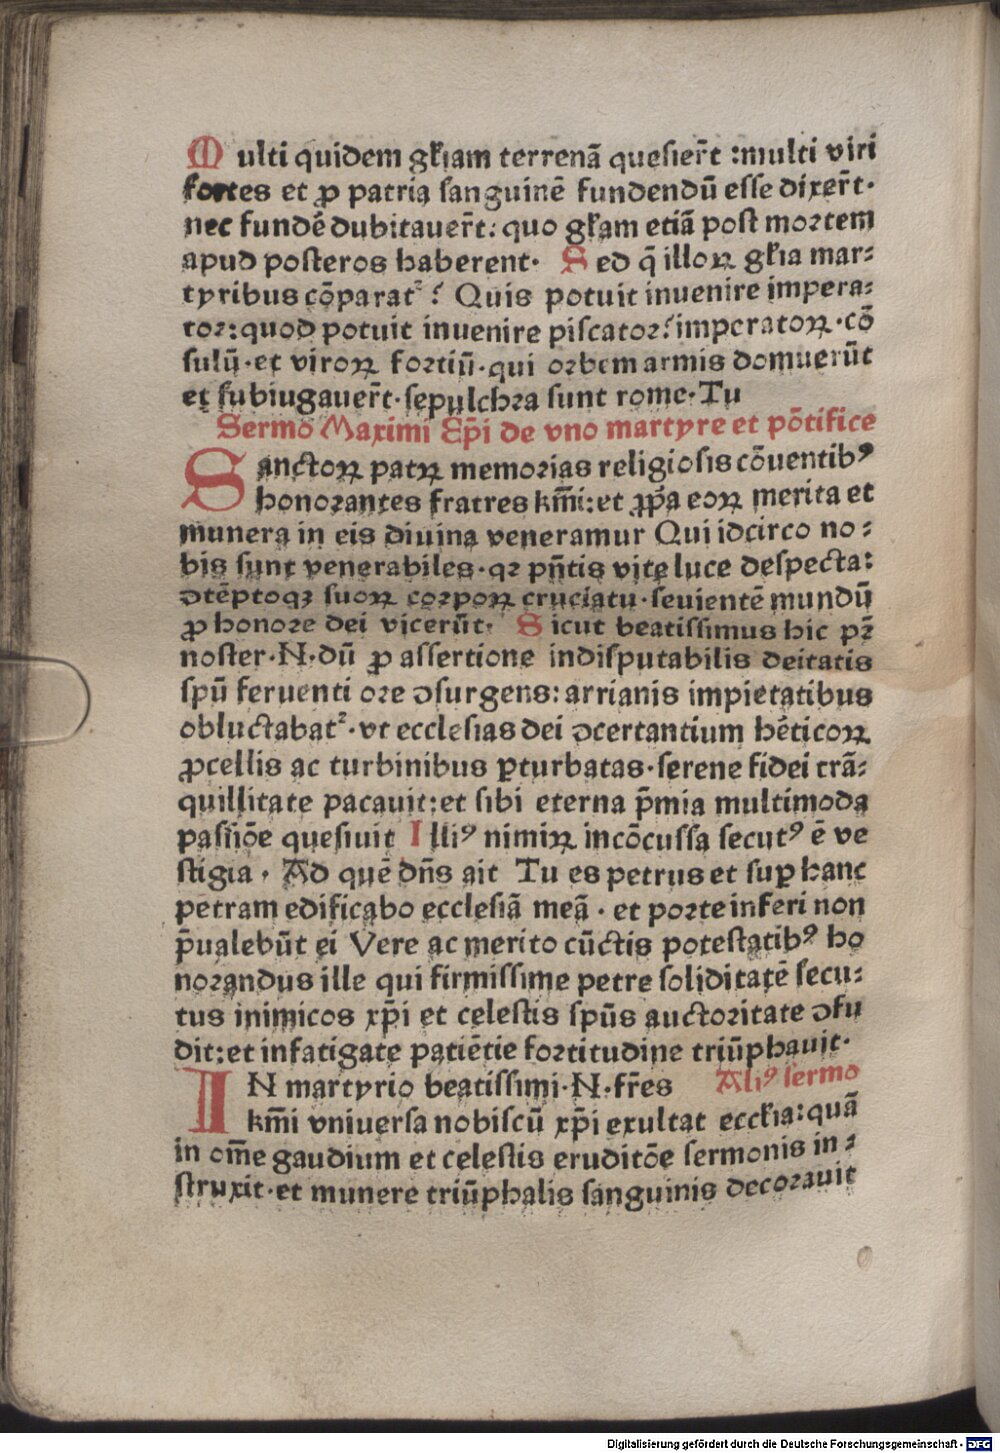 Multi quidem gl̄iam terrenā quesier̄t :multi viri
fortes et ꝓ patria sanguinē fundendū esse dixer̄t·
nec fundē dubitauer̄t: quo gl̄am etiā post mortem
apud posteros haberent· Sed q̄ illoꝝ gl̄ia mar⸗
tyribus cōparatᷣ ? Quis potuit inuenire impera⸗
tor:quod potuit inuenire piscator? imperatoꝝ·cō
sulū·et viroꝝ fortiū·qui orbem armis domuerūt
et subiugauer̄t·sepulchra sunt rome·Tu
Sermo Maximi Ep̄i de vno martyre et pōtifice
Sanctoꝝ patꝝ memorias religiosis cōuentibꝰ
honorantes fratres km̄i:et ꝓp̄a eoꝝ merita et
munera in eis diuina veneramur Qui idcirco no⸗
bis sunt venerabiles·qꝛ pn̄tis vite luce despecta:
ↄtēptoqꝫ suoꝝ corpoꝝ cruciatu·seuientē mundū
ꝓ honore dei vicerūt· Sicut beatissimus hic pr̄
noster·N·dū ꝓ assertione indisputabilis deitatis
spū feruenti ore ↄsurgens: arrianis impietatibus
obluctabatᷣ·vt ecclesias dei ↄcertantium hēticoꝝ
ꝓcellis ac turbinibus ꝑturbatas·serene fidei trā⸗
quillitate pacauit:et sibi eterna p̄mia multimoda
passiōe quesiuit Illiꝰ nimiꝝ incōcussa secutꝰ ē ve
stigia· Ad quē dn̄s ait Tu es petrus et suꝑ hanc
petram edificabo ecclesiā meā · et porte inferi non
p̄ualebūt ei Vere ac merito cūctis potestatibꝰ ho
norandus ille qui firmissime petre soliditatē secu⸗
tus inimicos xp̄i et celestis spūs auctoritate ↄfu
dit:et infatigate patiētie fortitudine triūphauit·
IN martyrio beatissimi·N·fr̄es Aliꝰ sermo
km̄i vniuersa nobiscū xp̄i exultat eccl̄ia:quā
in om̄e gaudium et celestis eruditōe sermonis in⸗
struxit·et munere triūphalis sanguinis decorauit
Digitalisierung gefördert durch die Deutsche Forschungsgemeinschaft - DFG